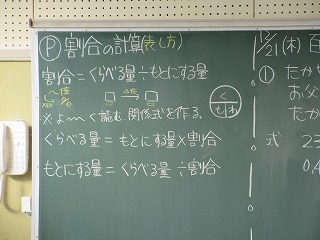 Ⓟ 割合の計算(表し方)
割合=くらべる量÷もとにする量
倍
□ △倍 □
く
も わ
※よーく読む。関係式を作る。
くらべる量=もとにする量×割合
もとにする量=くらべる量÷割合
12/21(木)
①
たか
お父
たか
式 23
0.4